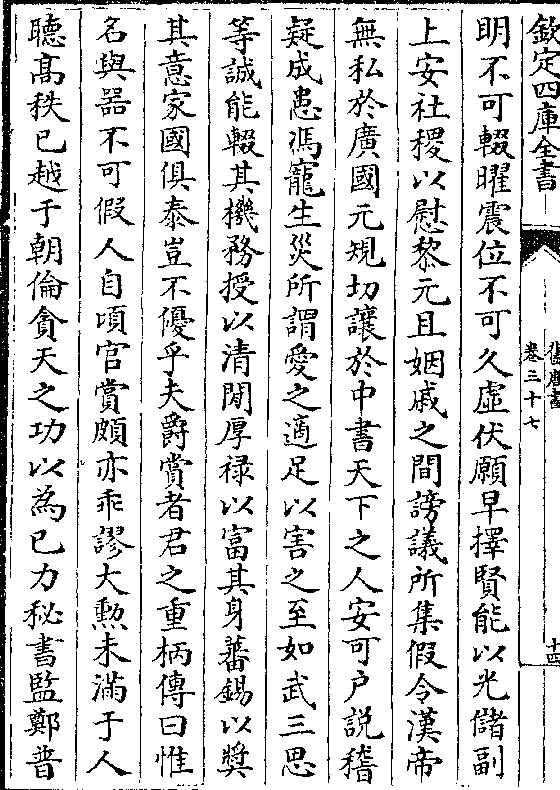 欽定四庫全書
舊唐書
卷三十七
十四
明不可輟曜震位不可久虛伏願早擇賢能以光儲副
上安社稷以慰黎元且姻戚之間謗議所集假令漢帝
無私於廣國元規切讓於中書天下之人安可户説稽
疑成患馮寵生災所謂愛之適足以害之至如武三思
等誠能輟其機務授以清閒厚禄以富其身蕃錫以奬
其意家國俱泰豈不優乎夫爵賞者君之重柄傳曰惟
名與器不可假人自頃官賞頗亦乖謬大勲未滿于人
聴髙秩已越于朝倫貪天之功以為已力秘書監鄭普